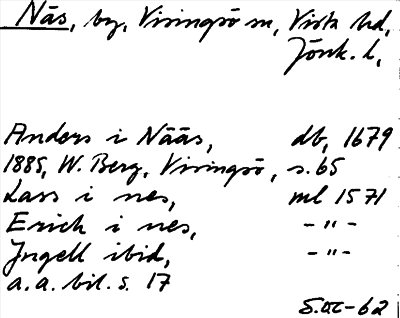 Näs, by, Visingsö sn, Vista hd,
Jönk. l,
Anders i Nääs, db, 1679
1885, W. Berg, Visingsö, s. 65
Lars i nes, ml 1571
Erich i nes, - " -
Jngell ibid, - " -
a. a. bil. s. 17